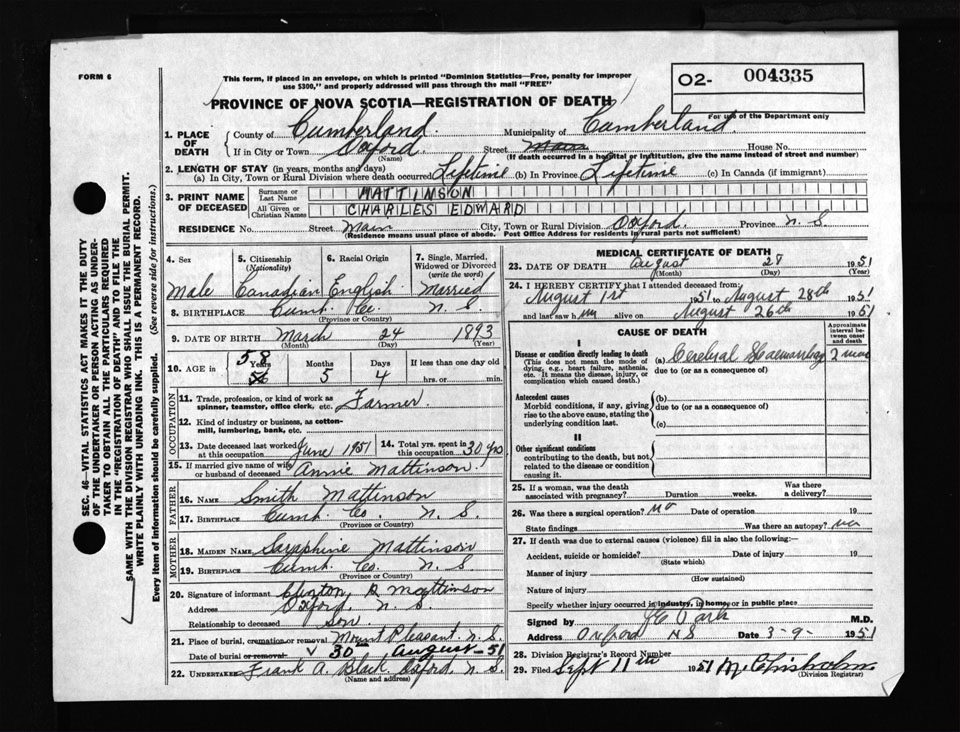 FORM 6
This form, if placed in an envelope, on which is printed "Dominion Statistics—Free, penalty for improper
use $300," and properly addressed will pass through the mail "FREE"
O2- 004335
PROVINCE OF NOVA SCOTIA—REGISTRATION OF DEATH
For use of the Department only
1. PLACE OF DEATH
County of Cumberland Municipality of Cumberland
If in City or Town Oxford Street Main House No.
(Name) (If death occurred in a hospital or institution, give the name instead of street and number)
2. LENGTH OF STAY (in years, months and days)
(a) In City, Town or Rural Division where death occurred Lifetime (b) In Province Lifetime (c) In Canada (if immigrant)
3. PRINT NAME OF DECEASED
Surname or Last Name MATTINSON
All Given or Christian Names CHARLES EDWARD
RESIDENCE No. Street Main City, Town or Rural Division Oxford Province N. S
(Residence means usual place of abode. Post Office Address for residents in rural parts not sufficient)
4. Sex Male
5. Citizenship (Nationality) Canadian
6. Racial Origin English
7. Single, Married, Widowed or Divorced (write the word) Married
8. BIRTHPLACE Cumb. Co.
(Province or Country)
9. DATE OF BIRTH March 24 1893
(Month) (Day) (Year)
10. AGE in 58 Years 56 Months 5 Days 4 If less than one day old
hrs. or min.
OCCUPATION
11. Trade, profession, or kind of work as
spinner, teamster, office clerk, etc. Farmer.
12. Kind of industry or business, as cotton-
mill, lumbering, bank, etc.
13. Date deceased last worked at this occupation June 1951
14. Total yrs. spent in this occupation 30 yrs
15. If married give name of wife or husband of deceased Annie Mattinson
FATHER
16. NAME Smith Mattinson
17. BIRTHPLACE Cumb. Co. N. S.
(Province or Country)
MOTHER
18. MAIDEN NAME Saraphine Mattinson
19. BIRTHPLACE Cumb. Co. N. S.
(Province or Country)
20. Signature of informant Clinton B Mattinson
Address Oxford, N. S.
Relationship to deceased Son
21. Place of burial, cremation or removal Mount Pleasant, N. S.
Date of burial or removal 30 August - 51
22. Undertaker Frank A. Black Oxford, N. S.
(Name and address)
MEDICAL CERTIFICATE OF DEATH
23. DATE OF DEATH August 28 1951
(Month) (Day) (Year)
24. I HEREBY CERTIFY that I attended deceased from:
August 1st 1951 to August 28th 1951
and last saw him alive on August 26th 1951
CAUSE OF DEATH
Approximate interval between onset and death
I
Disease or condition directly leading to death (a) Cerebral Haemorrhage 2
(This does not mean the mode of dying, e.g., heart failure, asthenia, etc. It means the disease, injury, or complication which caused death.)
due to (or as a consequence of)
Antecedent causes
Morbid conditions, if any, giving rise to the above cause, stating the underlying condition last.
(b)
due to (or as a consequence of)
(c)
II
Other significant conditions
contributing to the death, but not related to the disease or condition causing it.
25. If a woman, was the death associated with pregnancy? Duration weeks. Was there a delivery?
26. Was there surgical operation? no Date of operation 19
State findings Was there an autopsy? no
27. If death was due to external causes (violence) fill in also the following:—
Accident, suicide or homicide? Date of injury 19
(State which)
Manner of injury
(How sustained)
Nature of injury
Specify whether injury occurred in industry, in home, or in public place
Signed by M.D.
Address Oxford NS Date 3-9- 1951
28. Division Registrar's Record Number
29. Filed Sept 11th 1951 M Chisholm
(Division Registrar)
SEC. 46—VITAL STATISTICS ACT MAKES IT THE DUTY
OF THE UNDERTAKER OR PERSON ACTING AS UNDER-
TAKER TO OBTAIN ALL THE PARTICULARS REQUIRED
IN THE "REGISTRATION OF DEATH" AND TO FILE THE
SAME WITH THE DIVISION REGISTRAR WHO SHALL ISSUE THE BURIAL PERMIT.
WRITE PLAINLY WITH UNFADING INK. THIS IS A PERMANENT RECORD.
Every item of information should be carefully supplied. (See reverse side for instructions.)